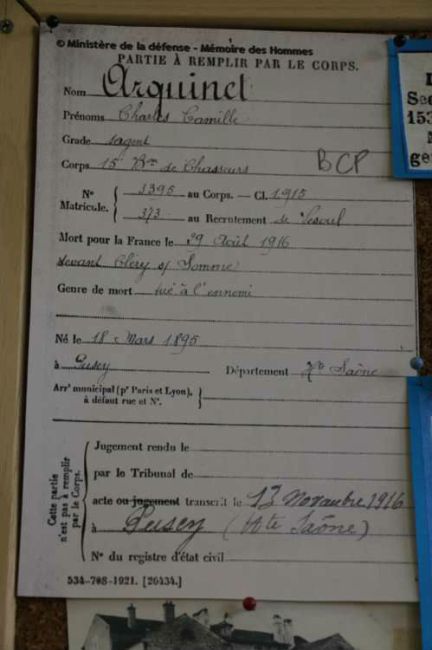 © Ministère de la défense - Mémoire des Hommes
PARTIE À REMPLIR PAR LE CORPS.
Nom Arguinet
Prénoms Charles Camille
Grade sergent
Corps 15 Bon de Chasseurs
BCP
N° Matricule. { 3395 au Corps. — Cl. 1915
373 au Recrutement de Vesoul
Mort pour la France le 29 Août 1916
devant Cléry s/ Somme
Genre de mort tué à l'ennemi
Né le 18 Mars 1895
à Pusey Département Hte Saône
Arrt municipal (pr Paris et Lyon),
à défaut rue et N°.
Cette partie
n'est pas à remplir
par le Corps.
Jugement rendu le
par le Tribunal de
acte ou jugement transcrit le 13 Novembre 1916
à Pusey (Hte Saône)
N° du registre d'état civil
534-708-1921. [26434.]
153